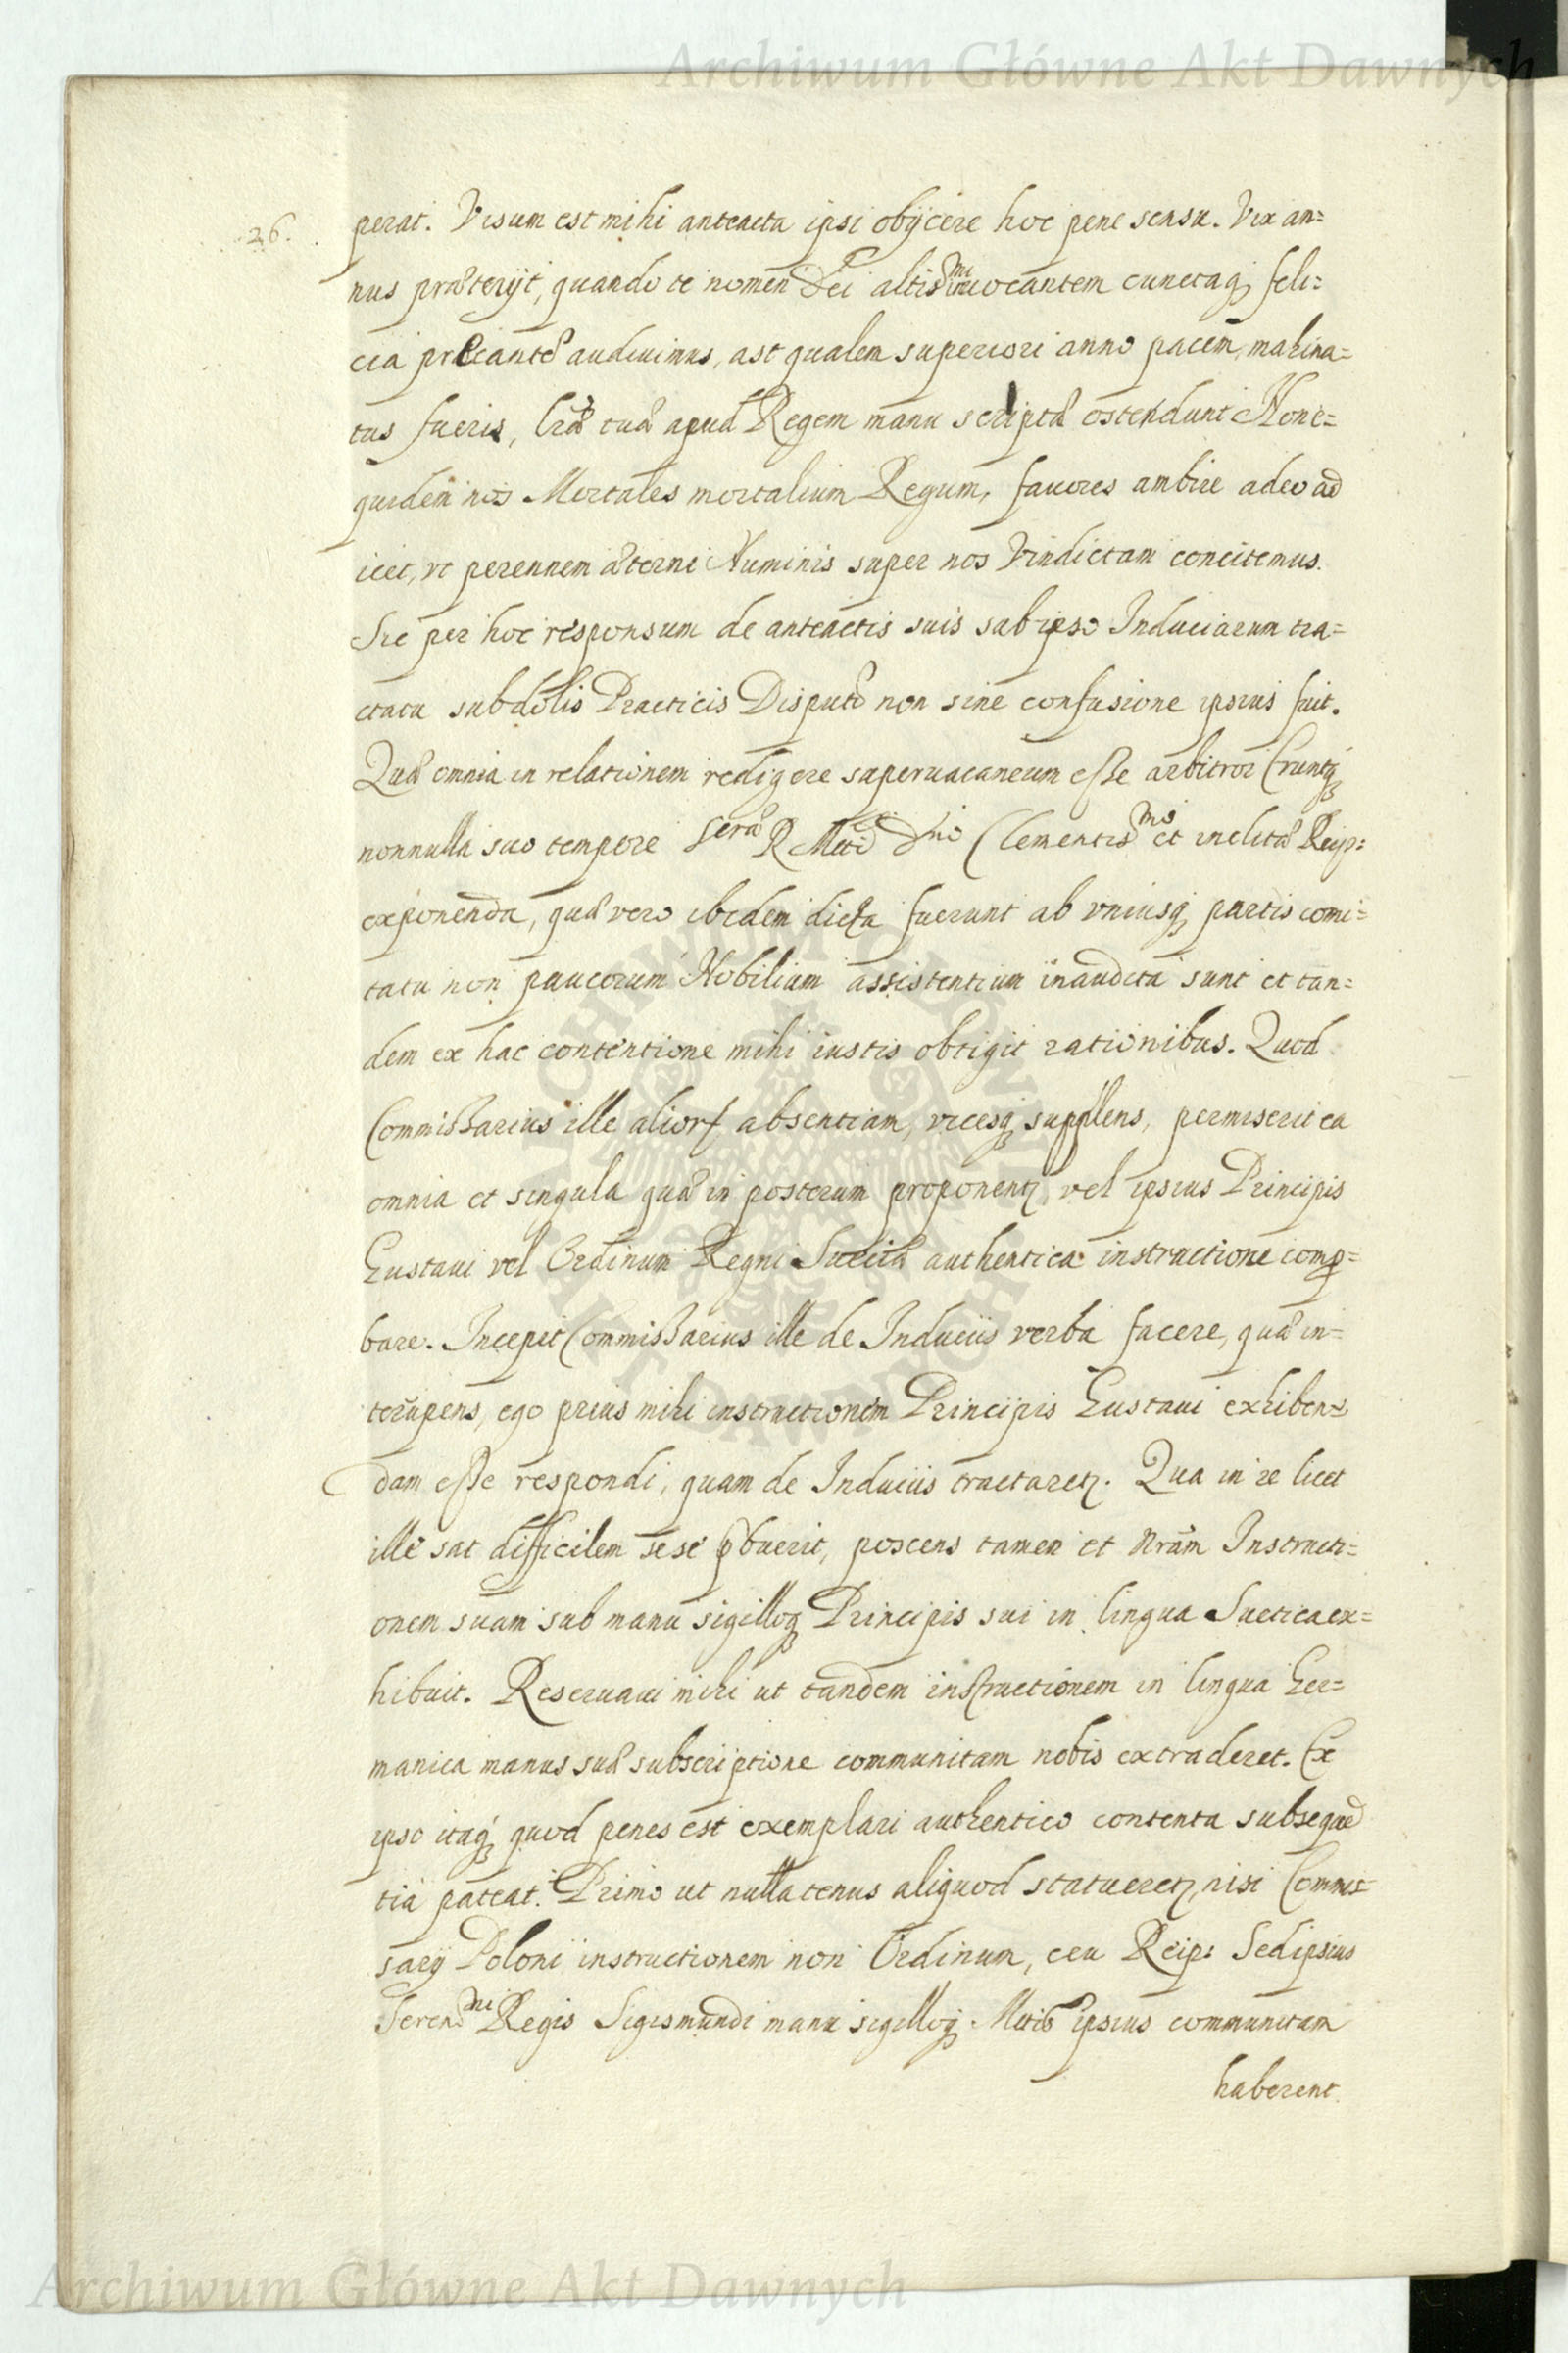 Archiwum Główne Akt Dawnych
26.
perat. Visum est mihi anteacta ipsi obijcere hoc pene sensu. Vix an=
nus præterijt, quando te nomen Dei altissmi inuocantem cunctaq; feli=
cia præcantē audiuimus, ast qualem superiori anno pacem, machina=
tus fueris, lræ tuæ apud Regem manu scriptæ ostendunt Hone=
quidem nos Mortales mortalium Regum, fauores ambire adeo ad
icet, vt perennem æterni Numinis super nos Vindictam concitemus.
Sic per hoc responsum de anteactis suis sub ipso Induciarum tra=
ctatu subdolis Practicis Disputō non sine confusione ipsius fuit.
Quæ omnia in relationem redigere superuacaneum esse arbitror Eruntq;
nonnulla suo tempore Seræ R Mtti Dno Clementismo et inclitæ Reip:
exponenda, quæ vero ibidem dicta fuerunt ab vniusq; partis comi=
tatu non paucorum Nobilium assistentium inaudita sunt et tan=
dem ex hac contentione mihi iustis obtigit rationibus. Quod
Commissarius ille alior absentiam, vicesq; supplens, permiserit ea
omnia et singula quæ in posterum proponentr, vel ipsius Principis
Gustaui vel Ordinum Regni Sueciæ authentica instructione comp=
bare. Incepit Commissarius ille de Induciis verba facere, quæ in=
terūpens, ego prius mihi instructionem Principis Gustaui exhiben=
dam esse respondi, quam de Induciis tractaretr. Qua in re licet
ille sat difficilem sese pbuerit, poscens tamen et nram Instructi=
onem suam sub manu sigilloq; Principis sui in lingua Suetica ex=
hibuit. Reseruaui mihi ut tandem instructionem in lingua Ger=
manica manus suæ subscriptione communitam nobis extraderet. Ex
ipso itaq; quod penes est exemplari authentico contenta subseqūe
tia pateat. Primo ut nullatenus aliquod statueretr, nisi Commis=
sarij Poloni instructionem non Ordinum, ceu Reip: Sed ipsius
Serenmi Regis Sigismundi manu sigilloq; Mttis ipsius communitam
haberent
Archiwum Główne Akt Dawnych